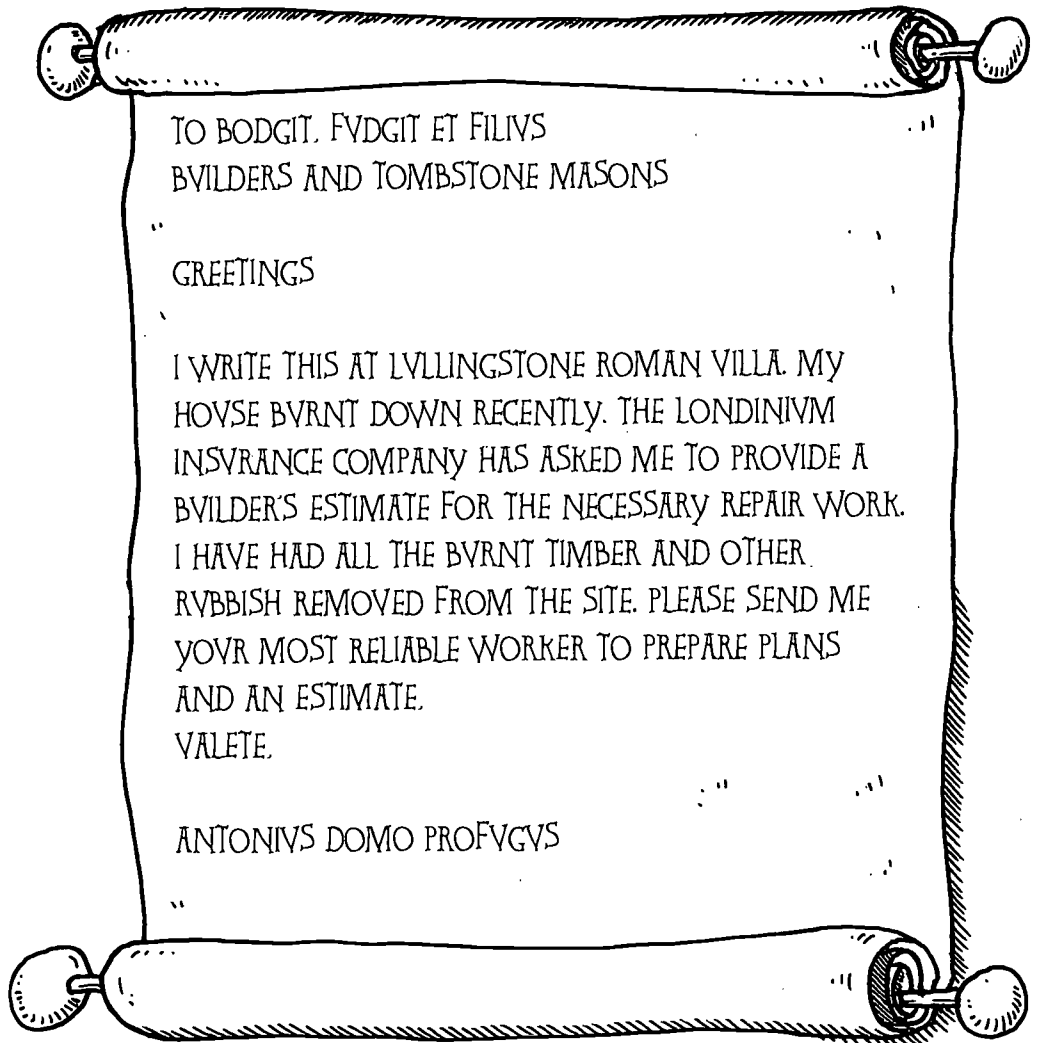 TO BODGIT, FVDGIT ET FILIVS
BVILDERS AND TOMBSTONE MASONS
GREETINGS
I WRITE THIS AT LVLLINGSTONE ROMAN VILLA. MY
HOVSE BVRNT DOWN RECENTLY. THE LONDINIVM
INSVRANCE COMPANY HAS ASKED ME TO PROVIDE A
BVILDER'S ESTIMATE FOR THE NECESSARY REPAIR WORK.
I HAVE HAD ALL THE BVRNT TIMBER AND OTHER
RVBBISH REMOVED FROM THE SITE. PLEASE SEND ME
YOVR MOST RELIABLE WORKER TO PREPARE PLANS
AND AN ESTIMATE.
VALETE,
ANTONIVS DOMO PROFVGVS